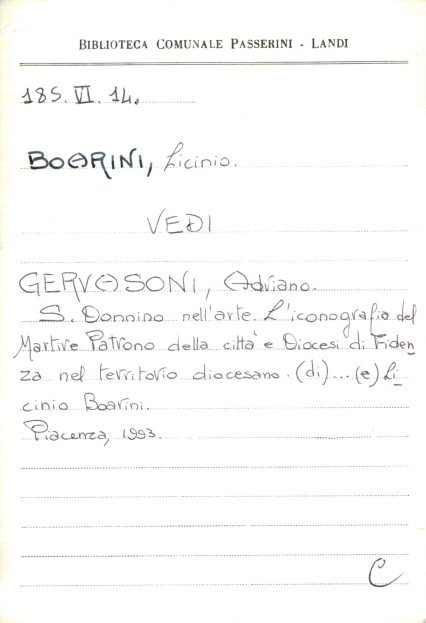 BIBLIOTECA COMUNALE PASSERINI - LANDI
185. VI. 14.
BOARINI, Licinio.
VEDI
GERVASONI, Adriano.
S. Donnino nell'arte. L'iconografia del
Martire Patrono della città e Diocesi di Fiden
za nel territorio diocesano. (di)... (e) Li
cinio Boarini.
Piacenza, 1993.
C